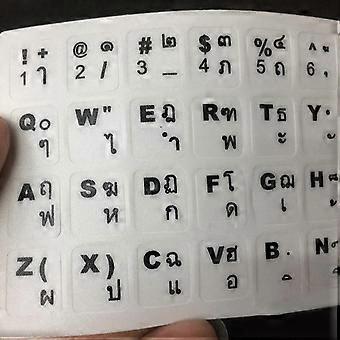 ! + @ ๑ # ๒ $ ๓ % ๔ ^ ู
1 ๅ 2 / 3 _ 4 ภ 5 ถ 6 ุ
Q ๐ W " E ฎ R ฑ T ธ Y ํ
ๆ ไ ำ พ ะ ั
A ฤ S ฆ D ฏ F โ G ฌ H ็
ฟ ห ก ด เ ้
Z ( X ) C ฉ V ฮ B ฺ N ์
ผ ป แ อ ิ ื